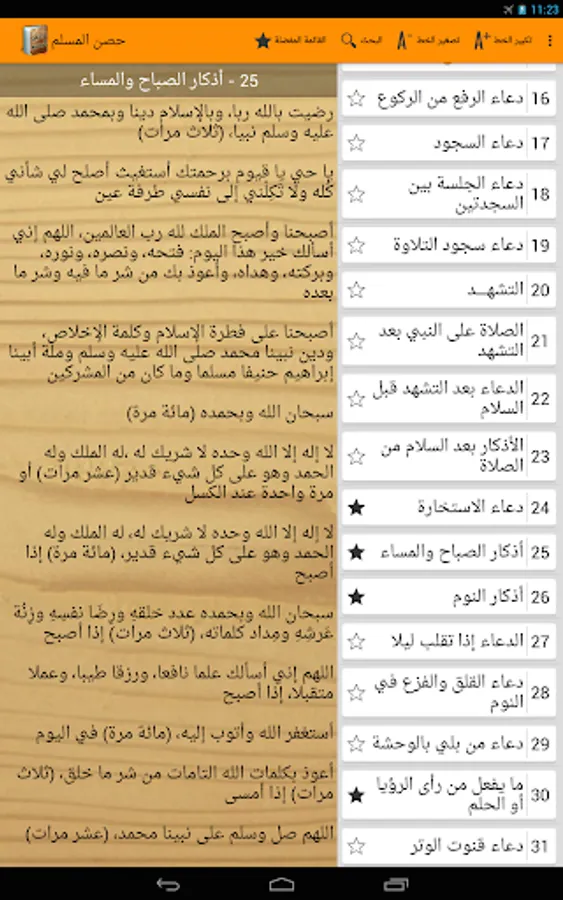 11:23
حصن المسلم
القائمة المفضلة
البحث
تصغير الخط
تكبير الخط
25 - أذكار الصباح والمساء
رضيت بالله ربا، وبالإسلام دينا وبمحمد صلى الله
عليه وسلم نبيا، (ثلاث مرات)
يا حي يا قيوم برحمتك أستغيث أصلح لي شأني
كله ولا تَكِلْني إلى نفسي طرفة عين
أصبحنا وأصبح الملك لله رب العالمين، اللهم إني
أسألك خير هذا اليوم: فتحه، ونصره، ونوره،
وبركته، وهداه، وأعوذ بك من شر ما فيه وشر ما
بعده
أصبحنا على فطرة الإسلام وكلمة الإخلاص،
ودين نبينا محمد صلى الله عليه وسلم وملة أبينا
إبراهيم حنيفا مسلما وما كان من المشركين
سبحان الله وبحمده (مائة مرة)
لا إله إلا الله وحده لا شريك له ،له الملك وله
الحمد وهو على كل شيء قدير (عشر مرات) أو
مرة واحدة عند الكسل
لا إله إلا الله وحده لا شريك له، له الملك وله
الحمد وهو على كل شيء قدير، (مائة مرة) إذا
أصبح
سبحان الله وبحمده عدد خلقهِ ورِضَا نفسِهِ وزِنُة
عَرشِهِ ومِداد كلماته، (ثلاث مرات) إذا أصبح
اللهم إني أسألك علما نافعا، ورزقا طيبا، وعملا
متقبلا، إذا أصبح
أستغفر الله وأتوب إليه، (مائة مرة) في اليوم
أعوذ بكلمات الله التامات من شر ما خلق، (ثلاث
مرات) إذا أمسى
اللهم صل وسلم على نبينا محمد، (عشر مرات)
16 دعاء الرفع من الركوع
17 دعاء السجود
18 دعاء الجلسة بين
السجدتين
19 دعاء سجود التلاوة
20 التشهــد
21 الصلاة على النبي بعد
التشهد
22 الدعاء بعد التشهد قبل
السلام
23 الأذكار بعد السلام من
الصلاة
24 دعاء الاستخارة
25 أذكار الصباح والمساء
26 أذكار النوم
27 الدعاء إذا تقلب ليلا
28 دعاء القلق والفزع في
النوم
29 دعاء من بلي بالوحشة
30 ما يفعل من رأى الرؤيا
أو الحلم
31 دعاء قنوت الوتر